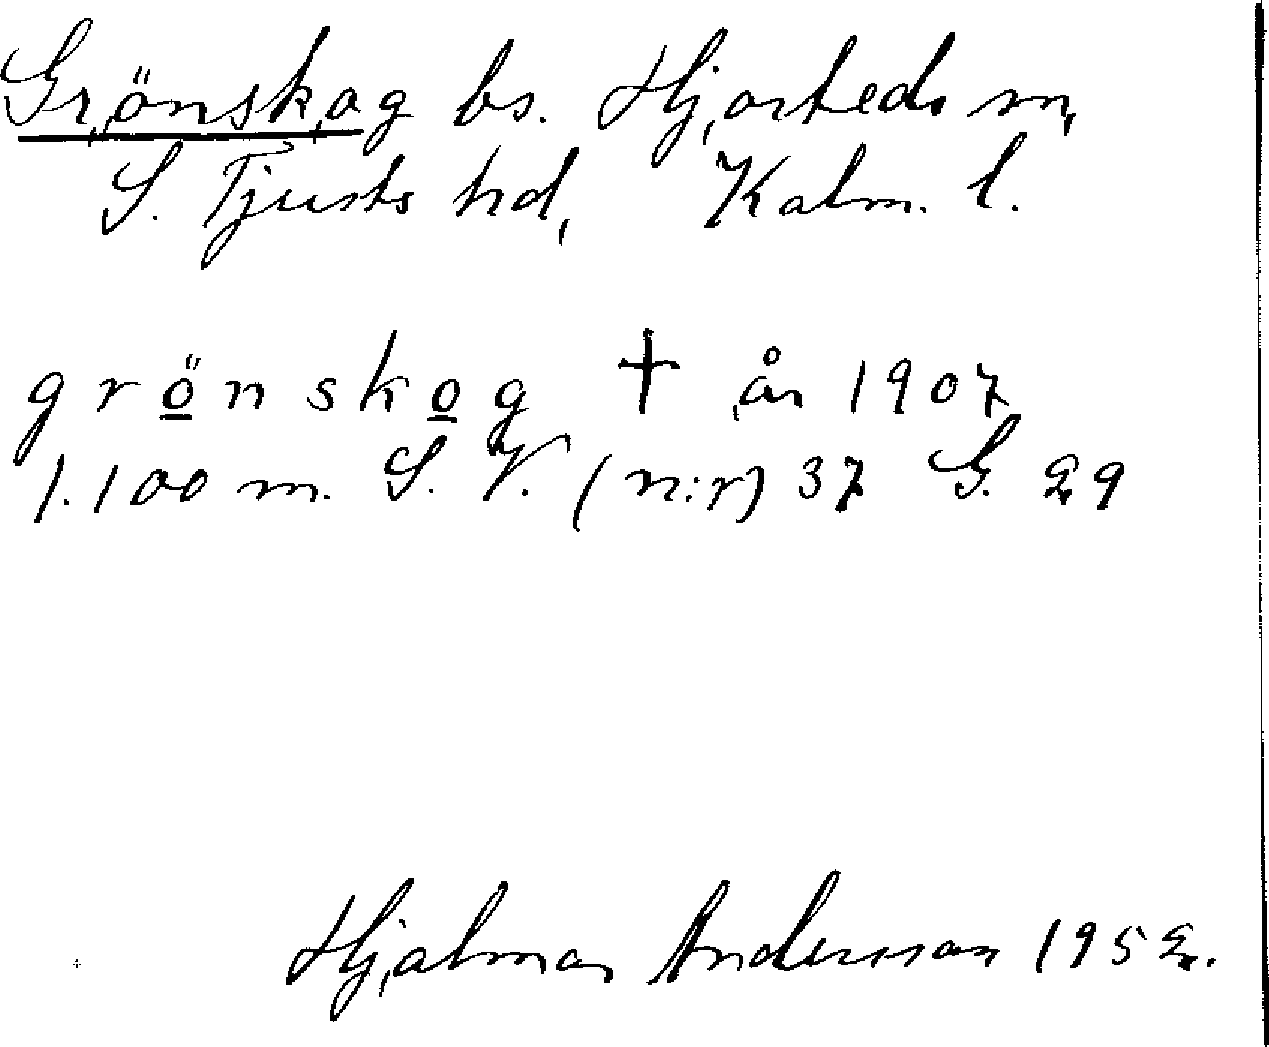 Grönskog bs. Hjorteds sn,
S. Tjusts hd, Kalm. l.
grönskog † år 1907
1.100 m. S. V. (n:r) 37 G. 29
Hjalmar Andersson 1952.